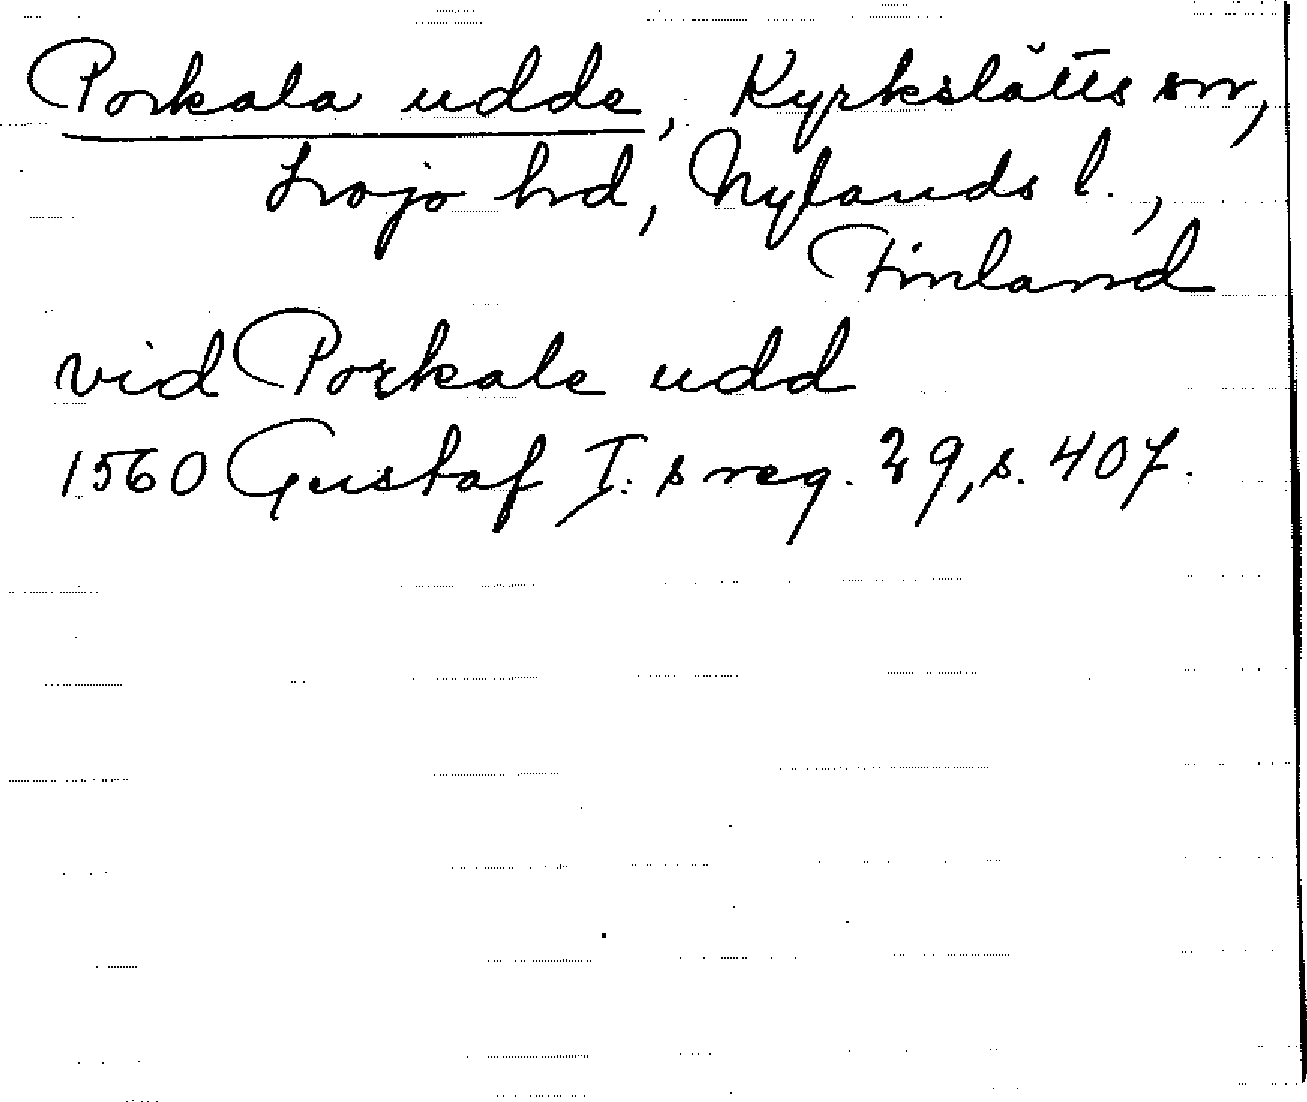 Porkala udde, Kyrkslätts sn,
Lojo hd, Nylands l.,
Finland
vid Porkale udd
1560 Gustaf I:s reg. 29, s. 407.